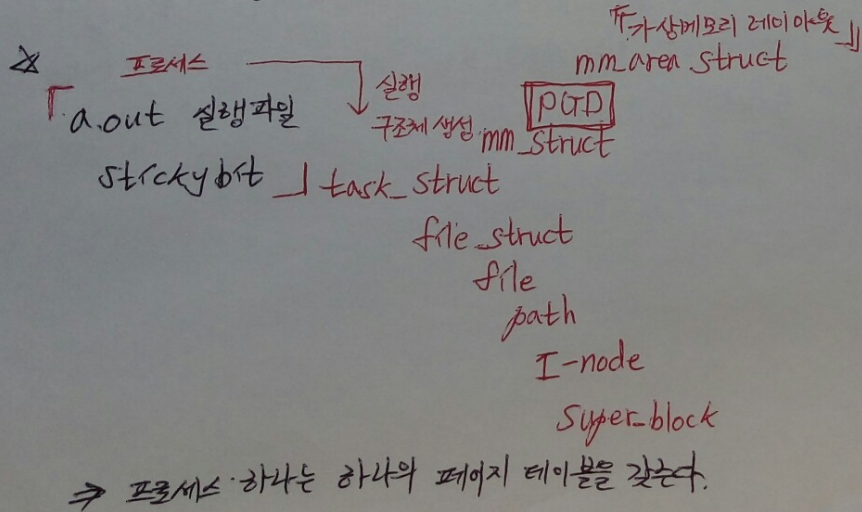 『가상메모리 레이아웃』
☆ 프로세스 mm_area_struct
「a.out 실행파일 실행 PGD
구조체 생성 mm_struct
stickybit」 task_struct
file_struct
file
path
I-node
Super_block
⇒ 프로세스 하나는 하나의 페이지 테이블을 갖는다.